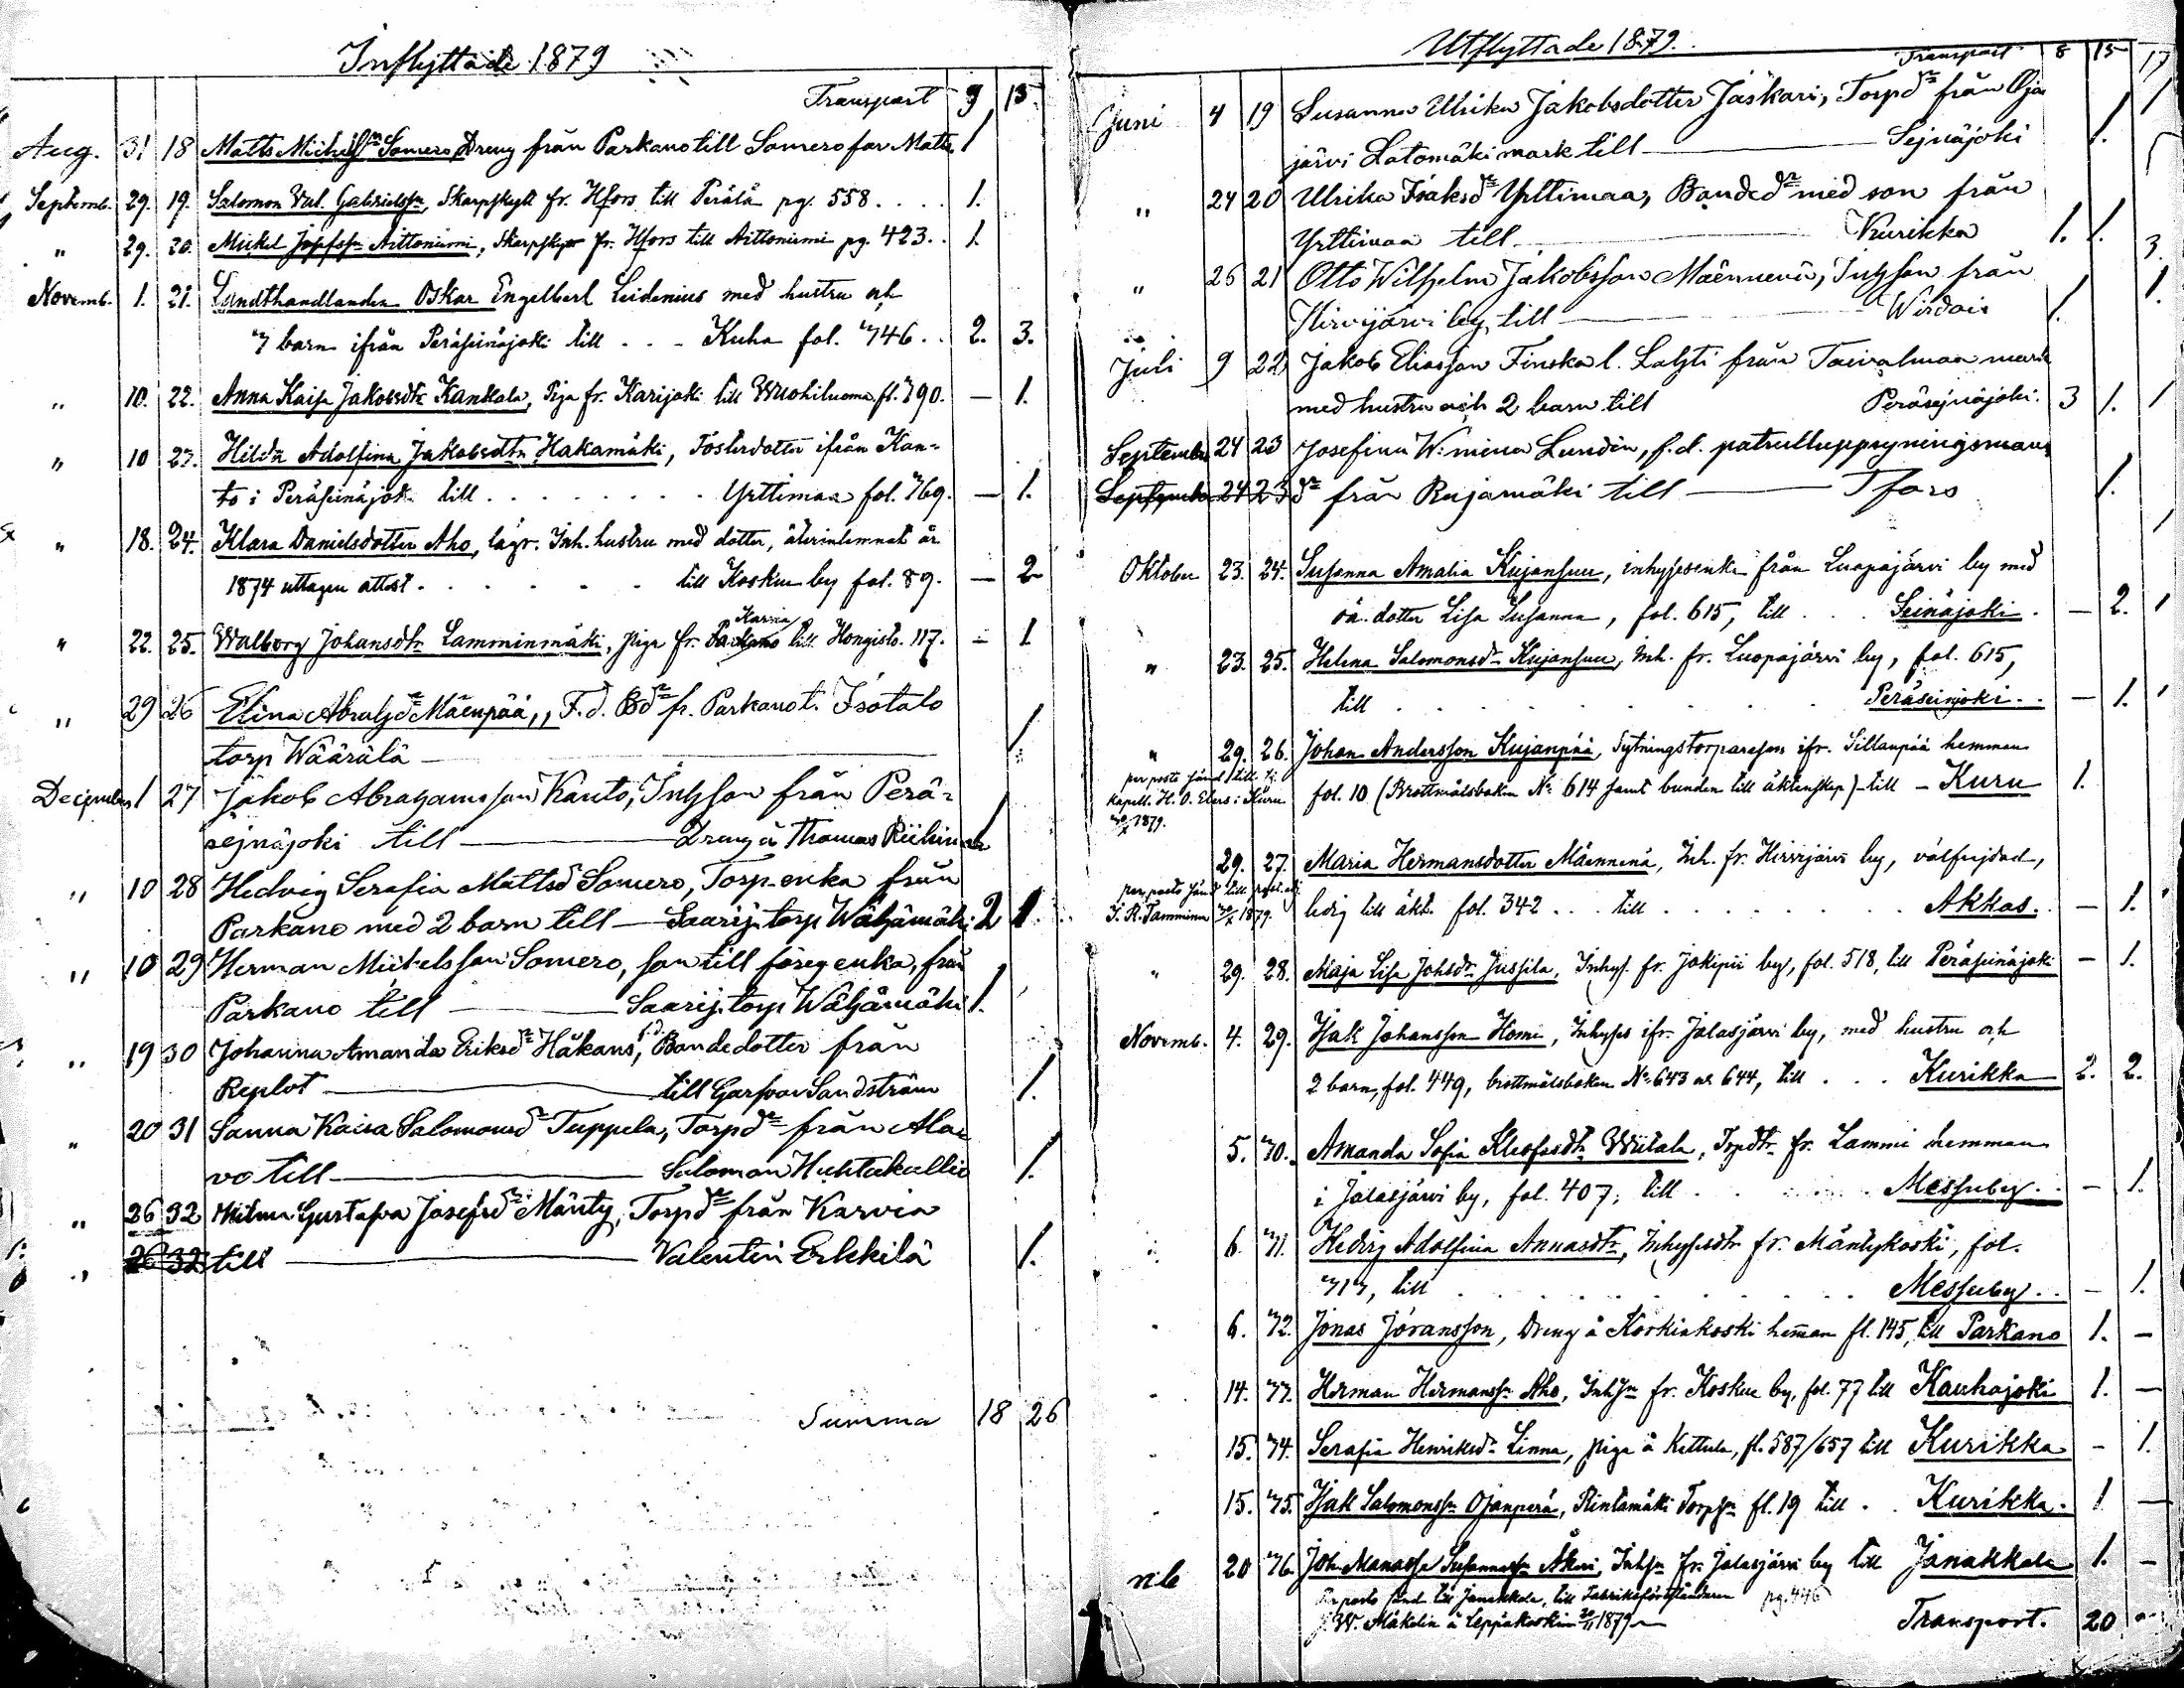 Inflyttade 1879
Transport 9 13
Aug. 31 18 Matts Michelssn Somero, Dreng från Parkano till Somero far Matts 1
Septemb. 29. 19. Salomon Val. Gabrielssn, Skarpskytt fr. Hfors till Perälä pg. 558 . . . . 1.
" 29. 20. Mickel Josefssn Aittoniemi, Skarpskytt fr. Hfors till Aittoniemi pg. 423. . 1.
Novemb. 1. 21. Landthandlanden Oskar Engelbert Leidenius med hustru och
7 barn ifrån Peräseinäjoki till . . - Kuha fol. 746. . 2. 3.
" 10. 22. Anna Kaisa Jakobsdtr Kankala, Piga fr. Karijoki till Wuohiluoma fl. 790. — 1.
" 10 23. Hilda Adolfina Jakobsdtr Hakamäki, Fosterdotter ifrån Kan-
to i Peräseinäjok. till . . . . . . . Yrttimaa fol. 769. — 1.
" 18. 24. Klara Danielsdotter Aho, lagr. Inh. hustru med dotter, återinlemnat år
1874 uttagen attest . . . . . . till Koskue by fol. 89. — 2
Karvia
" 22. 25. Walborg Johansdtr Lamminmäki, piga fr. Parkano till Hongisto. 117. — 1
" 29 26 Elina Abrahsdr Mäenpää, F.d. Bdr fr. Parkano t. Isotalo
torp Wäärälä — 1.
December 1 27 Jakob Abrahamsson Kanto, Inhson från Perä-
sejnäjoki till — Dreng å Thomas Riihimak 1
" 10 28 Hedvig Serafia Mattsd Somero, Torp-enka från
Parkano med 2 barn till — Saarij. torp Wäljämäki 2 1.
" 10 29 Herman Miikelsson Somero, son till föreg enka, från
Parkano till — Saarij. torp Wäljämäki 1.
" 19 30 Johanna Amanda Eriksdr Håkans, f.d. Bondedotter från
Replot — till Garfvar Sandström 1.
" 20 31 Sanna Kaisa Salomonsdr Tuppela, Torpdr från Ala-
vo till — Salomon Huhtakallio 1.
" 26 32 Wilma Gustafva Josefsdr Mänty, Torpdr från Karvia
" 26 32 till — Valentin Erkkilä 1.
Summa 18 26
Utflyttade 1879.
Transport 8 15 17
Juni 4 19 Susanna Ulrika Jakobsdotter Jäskari, Torpdr från Oja
järvi Latomäki mark till — Sejnäjoki 1.
" 24 20 Ulrika Isaksdr Yrttimaa, Bondedr med son från
Yrttimaa till — Kurikka 1. 1. 3.
" 25 21 Otto Wilhelm Jakobsson Mäennenä, Inhson från
Hirvijärvi by till — Wirdois 1. 1.
Juli 9 22 Jakob Eliasson Finska l. Lahti från Taivalmaa mark
med hustru och 2 barn till Peräsejnäjoki. 3 1. 1
September 24 23 Josefina W:mina Lundén, f.d. patrulluppsyningsmans
September 24 23 dr från Rajamäki till — Tfors 1.
Oktober 23. 24. Susanna Amalia Kujansuu, inhysesenka från Luopajärvi by med
oä. dotter Lisa Susanna, fol. 615, till . . . Seinäjoki. — 2. 1
" 23. 25. Helena Salomonsdr Kujansuu, Inh. fr. Luopajärvi by, fol. 615,
till . . . . . . . Peräseinjoki. . — 1. 1
" 29. 26. Johan Andersson Kujanpää, Sytningstorpareson ifr. Sillanpää hemman
per posto sänd till tj.
kapell. H. O. Elers i Kuru
30/X 1879.
fol. 10 (Brottmålsboken No 614 samt bunden till äktenskap) till - Kuru 1.
29. 27. Maria Hermansdotter Mäennenä, Inh. fr. Hirvijärvi by, välfrejdad,
I. R. Tamminen 30/X 1879. ledig till äkt. fol. 342 . . . till . . . . . . . Akkas. . — 1. 1
" 29. 28. Maja Lisa Johsdr Jussila, Inhys. fr. Jokipii by, fol. 518, till Peräseinäjoki — 1.
Novemb. 4. 29. Isak Johansson Homi, Inhyses ifr. Jalasjärvi by, med hustru och
2 barn, fol. 449, brottmålsboken No: 643 och 644, till . . . Kurikka 2. 2.
5. 70. Amanda Sofia Kleofasdtr Wiitala, Trpdtr fr. Lammi hemman
i Jalasjärvi by, fol. 407, till . . . . . Messuby. . — 1.
6. 71. Hedvig Adolfina Annasdtr, Inhysesdtr fr. Mäntykoski, fol.
717, till . . . . . . . Messuby. . — 1.
6. 72. Jonas Jöransson, Dreng å Korkiakoski heman fl. 145, till Parkano 1. —
14. 73. Herman Hermanssn Aho, Inhsn fr. Koskue by, fol. 77 till Kauhajoki 1. —
15. 74. Serafia Henriksdr Linna, piga å Kettula, fl. 587/657 till Kurikka — 1.
15. 75. Isak Salomonssn Ojanperä, Rintamäki Torpsn fl. 19 till . . Kurikka. 1 —
20 76. Joh. Manasse Susannassn Åkeri, Inhsn fr. Jalasjärvi by till Janakkala 1. —
Per posto sänd till Janakkala, till Fabriksföreståndaren pg. 446
J. W. Mäkelin å Leppäkoski 20/11 1879 —
Transport. 20